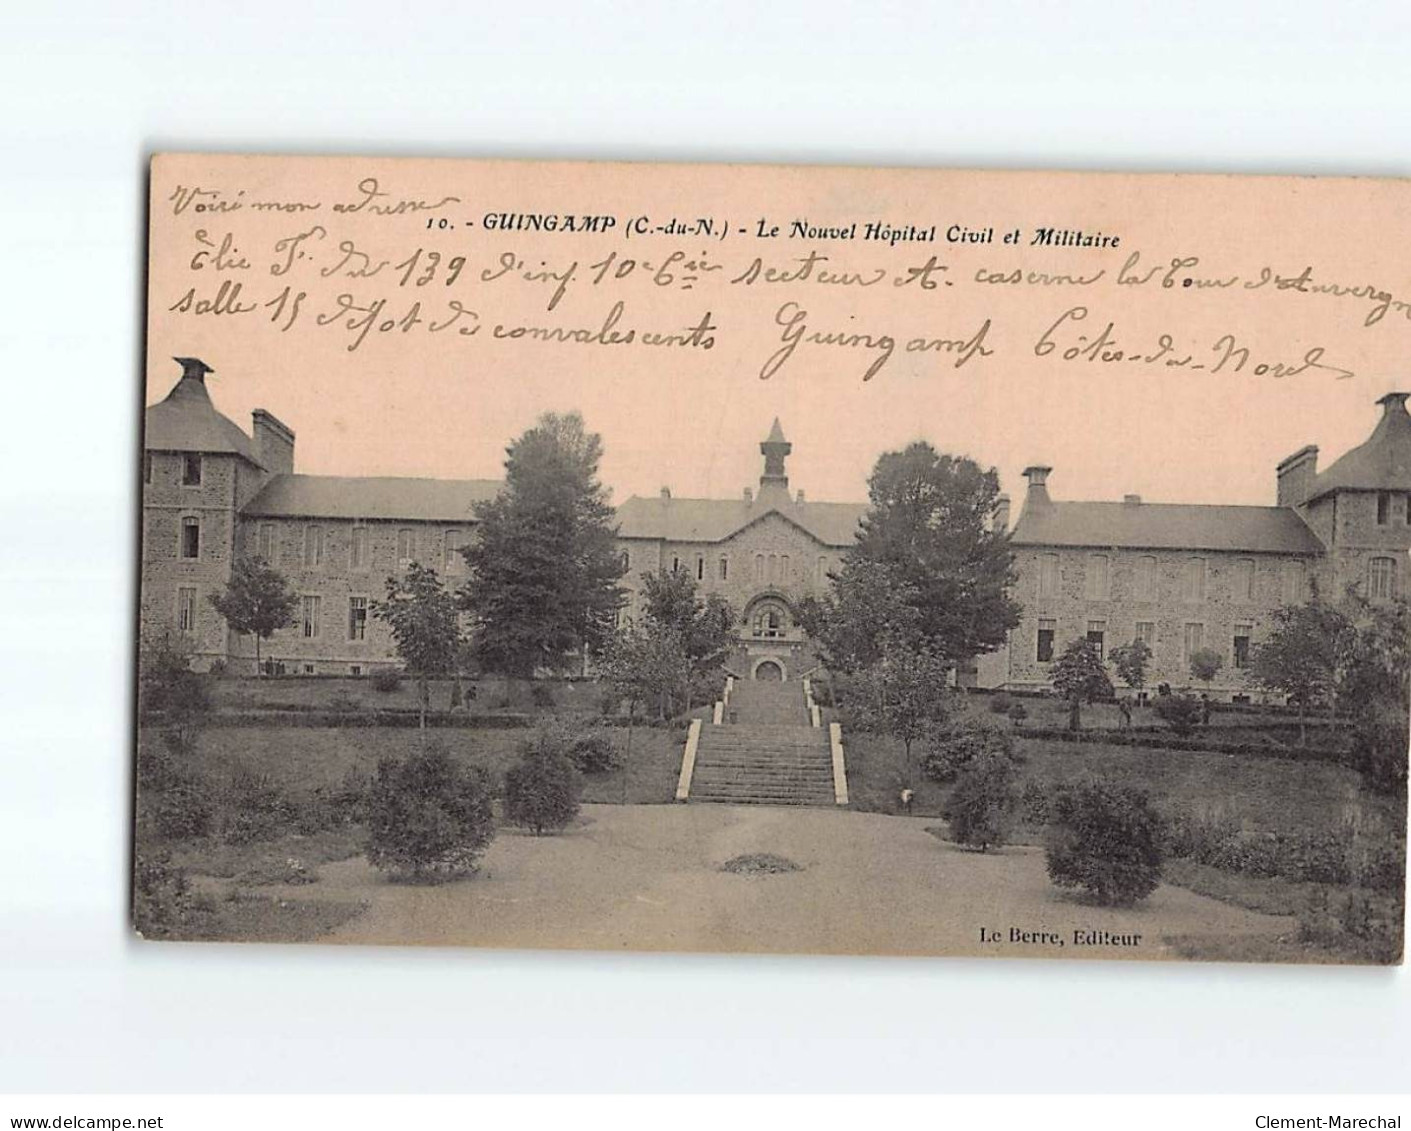 Voici mon adresse
10. - GUINGAMP (C.-du-N.) - Le Nouvel Hôpital Civil et Militaire
Élie F. du 139 d'inf. 10e Cie secteur A. caserne la Tour d'Auvergn
salle 15 dépôt de convalescents Guingamp Côtes-du-Nord
Le Berre, Editeur
www.delcampe.net
Clement-Marechal